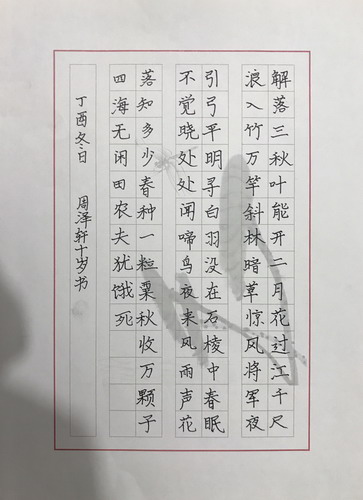 解落三秋叶能开二月花过江千尺
浪入竹万竿斜林暗草惊风将军夜
引弓平明寻白羽没在石棱中春眠
不觉晓处处闻啼鸟夜来风雨声花
落知多少春种一粒粟秋收万颗子
四海无闲田农夫犹饿死
丁酉冬日 周泽轩十岁书